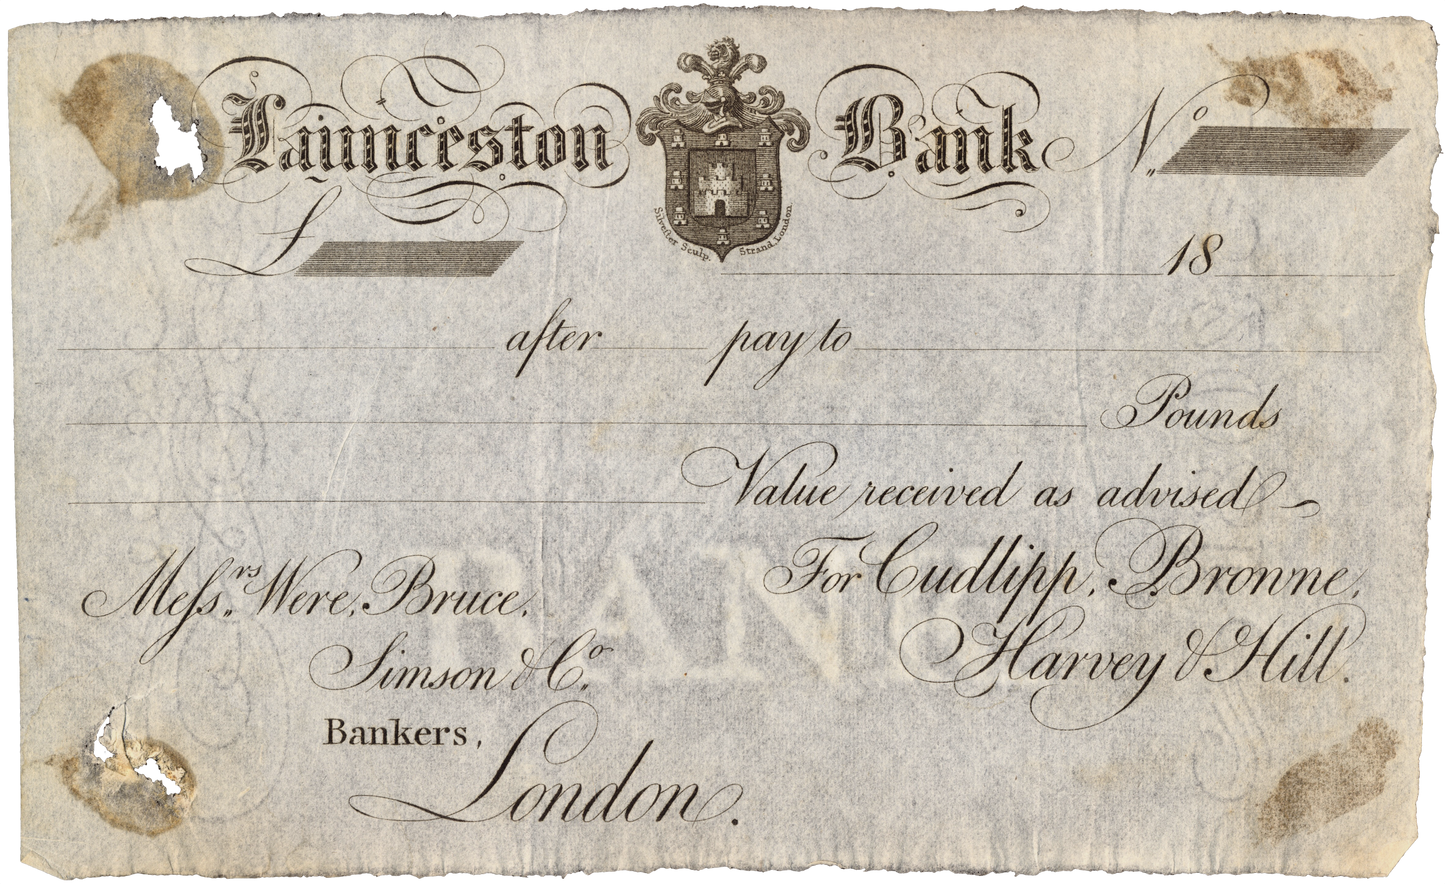 Launceston Bank No.
£
Silvester Sculp. Strand London.
18
after pay to
Pounds
Value received as advised
For Cudlipp, Browne,
Harvey & Hill.
Meſsrs. Were, Bruce,
Simson & Co.
Bankers,
London.
BANK